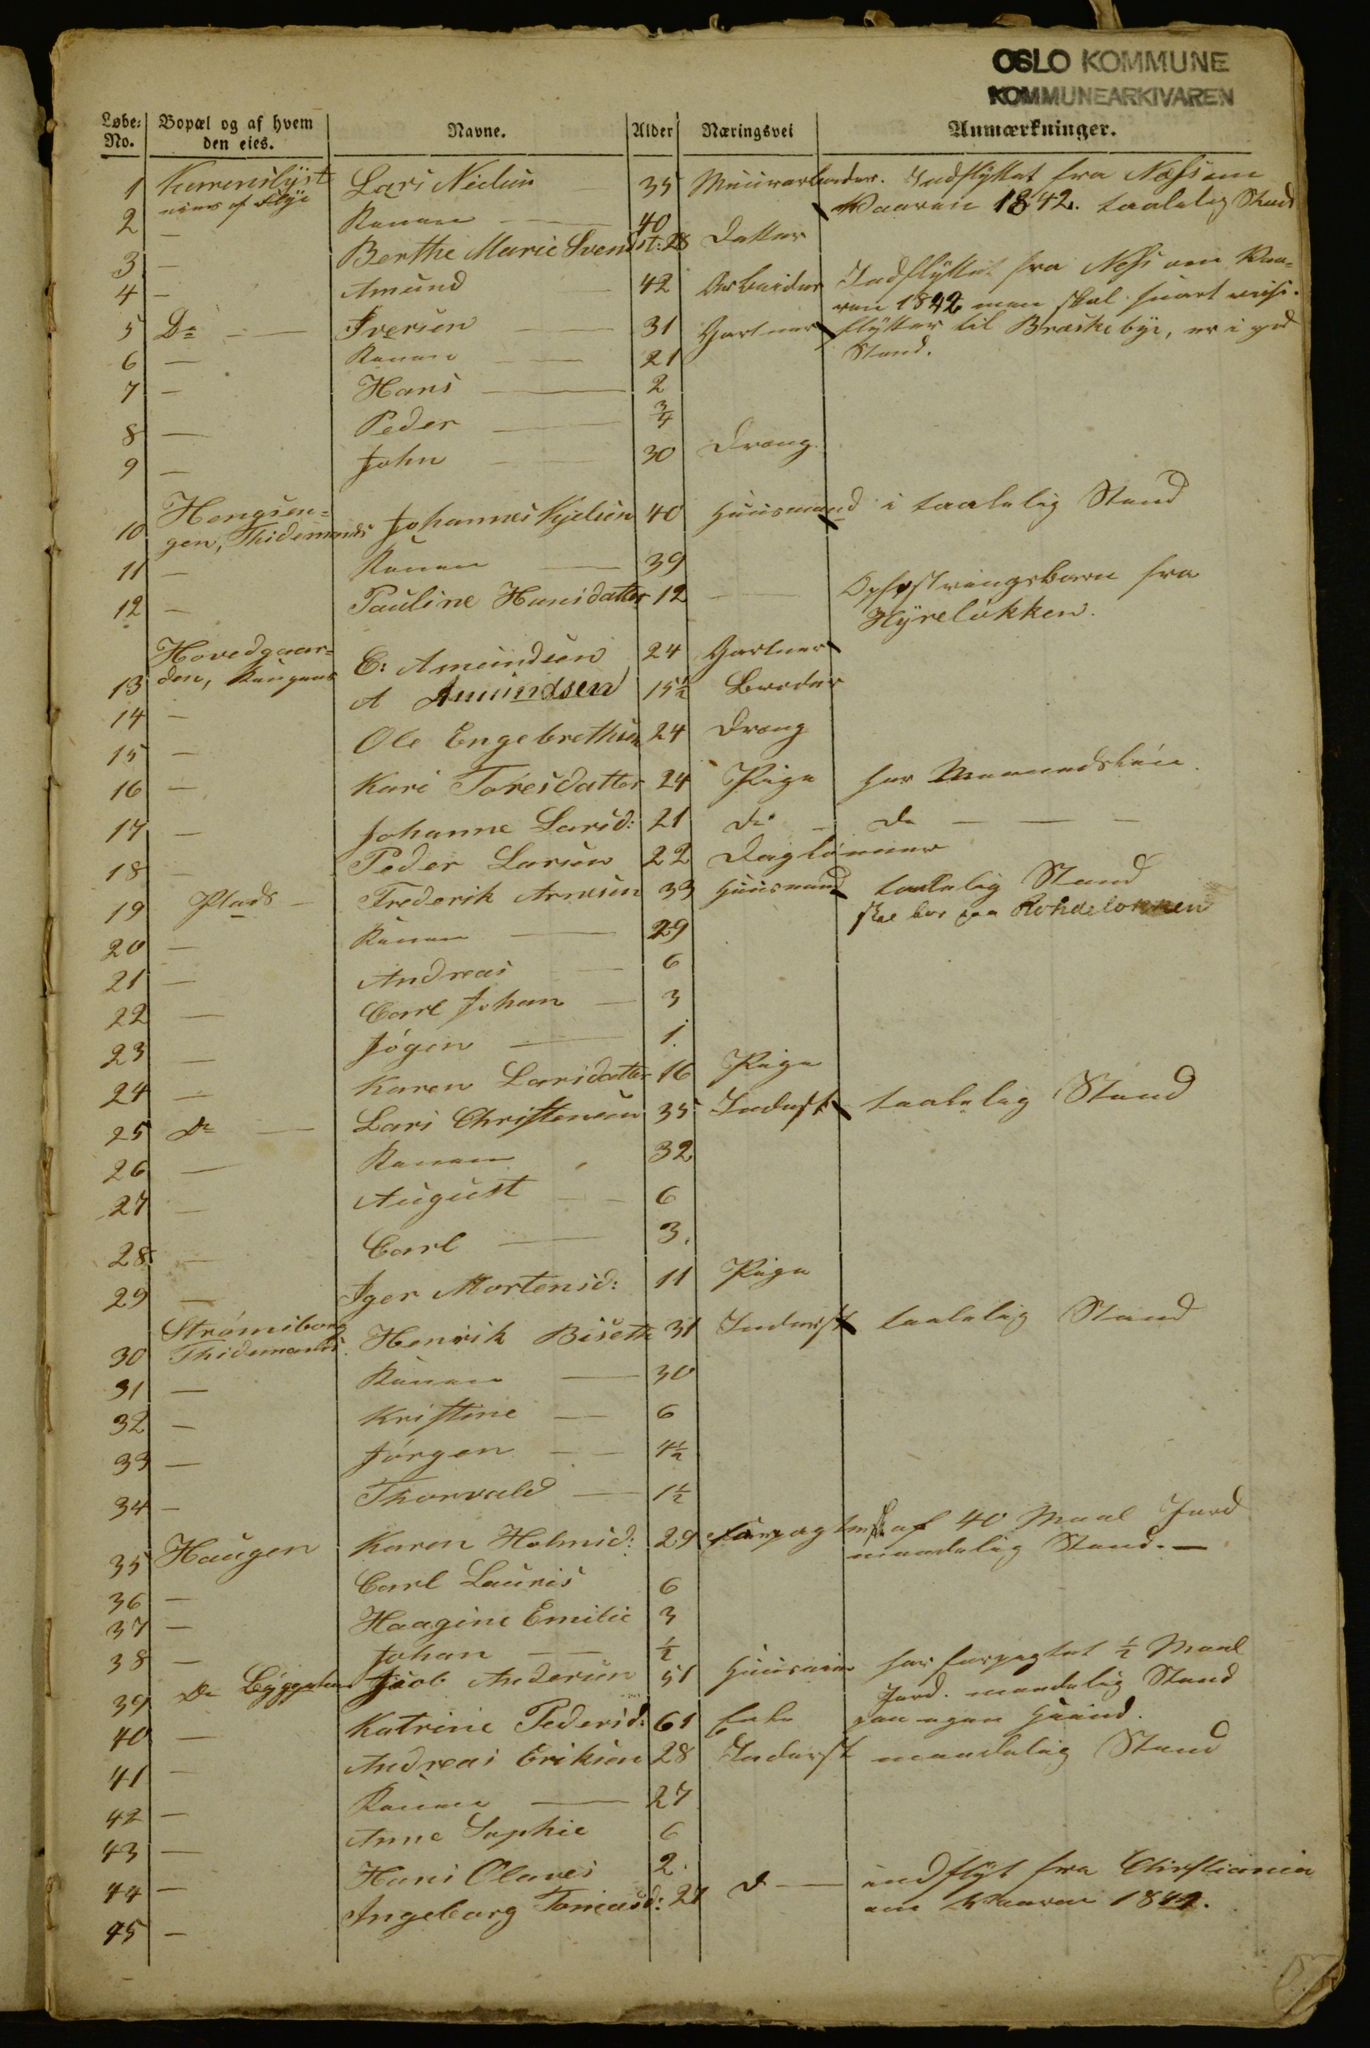 OSLO KOMMUNE
KOMMUNEARKIVAREN
Løbe-No. Bopæl og af hvem den eies. Navne. Alder Næringsvei Anmærkninger.
1 Karenslyst Lars Nielsen 35 Muurarbeider. Indflyttet fra Næs om
2 eies af Konen 40 Vaaren 1842. taalelig Stand
3 — Berthe Marie Svendsd: 28 Datter
4 — Amund 42 Arbeider Indflyttet fra Næs om Vaa-
ren 1842 men skal snart
5 Do — Iversen 31 Gartner flytter til Braskebye, er i god
6 — Konen 21 Stand.
7 — Hans 2
8 — Peder 3/4
9 — John 30 Dreng
10 Hengsen-gen, Thidemands Johannes Kjelsen 40 Huusmand i taalelig Stand
11 — Konen 39
12 — Pauline Hansdatter 12 — Opfostringsbarn fra
Hyreløkken.
13 Hovedgaar-den, E: Amundsen 24 Gartner
14 — A Amundsen 15½ Broder
15 — Ole Engebrethsen 24 Dreng
16 — Kari Toresdatter 24 Pige har Maanedsløn.
17 — Johanne Larsd: 21 do — do —
18 — Peder Larsen 22 Daglønner
19 Plads — Frederik Arnesen 33 Huusmand taalelig Stand
20 — Konen 29 skal bo paa Rohdeløkken
21 — Andreas 6
22 — Carl Johan 3
23 — Jøgen 1
24 — Karen Larsdatter 16 Pige
25 Do — Lars Christensen 35 Inderst taalelig Stand
26 — Konen 32
27 — August 6
28 — Carl 3.
29 — Iger Mortensd: 11 Pige
30 Strømsborg Thidemands Henrik Biseth 31 Inderst taalelig Stand
31 — Konen 30
32 — Kristine 6
33 — Jørgen 4½
34 — Thorvald 1½
35 Haugen Karen Holmsd: 29 Forpagterske af 40 Maal Jord
maadelig Stand. —
36 — Carl Lauris 6
37 — Haagine Emilie 3
38 — Johan ½
39 Do Jacob Andersen 51 har forpagtet ½ Maal
Jord. maadelig Stand
40 — Katrine Pedersd: 61 Enke paa egen Haand.
41 — Andreas Eriksen 28 Inderst maadelig Stand
42 — Konen 27
43 — Anne Sophie 6
44 — Hans Olaves 2.
45 — Ingeborg Tomasd: 21 D — indflyt fra Christiania
om Vaaren 1842.